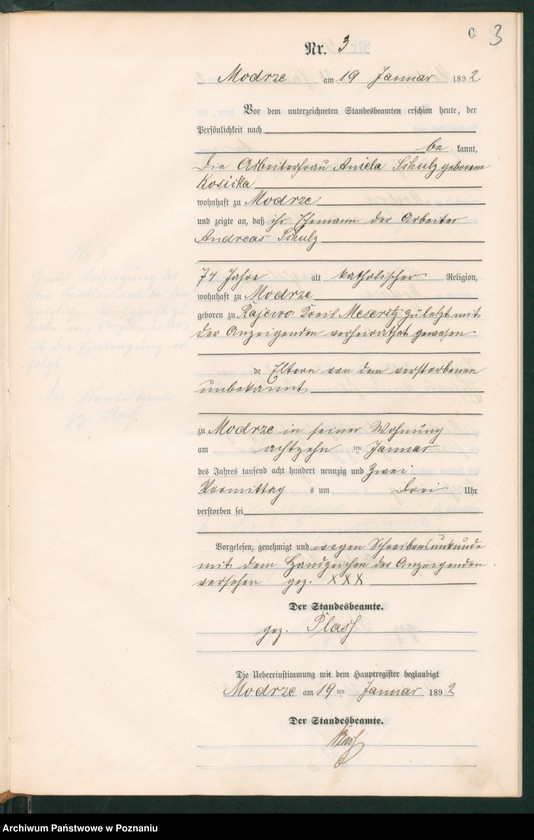 C. 3
Nr. 3
Modrze am 19 Januar 1892
Vor dem unterzeichneten Standesbeamten erschien heute, der
Persönlichkeit nach
be kannt,
die Arbeiterfrau Aniela Schulz geborene
Kosicka
wohnhaft zu Modrze
und zeigte an, daß ihr Ehemann der Arbeiter
Andreas Schulz
74 Jahre alt katholischer Religion,
wohnhaft zu Modrze
geboren zu Kajewo Kreis Meseritz zuletzt mit
der Anzeigenden verheirathet gewesen
de Eltern von dem verstorbenen
unbekannt
zu Modrze in seiner Wohnung
am achtzehn ten Januar
des Jahres tausend acht hundert neunzig und zwei
Vormittag s um drei Uhr
verstorben sei
Vorgelesen, genehmigt und wegen Schreibensunkunde
mit dem Handzeichen der Anzeigenden
versehen gez. XXX
Der Standesbeamte.
gez.
Die Uebereinstimmung mit dem Hauptregister beglaubigt
Modrze am 19 ten Januar 1892
Der Standesbeamte.
Archiwum Państwowe w Poznaniu